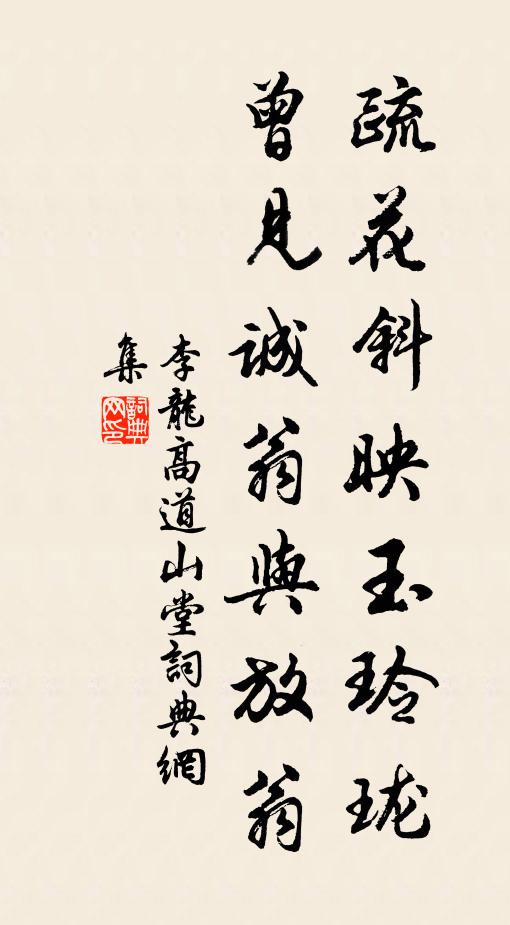 疏花斜映玉玲珑
曾見誠翁與放翁
李龍高道山堂詞典網
集
詞典
网印